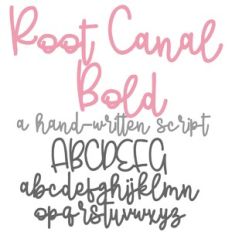 Root Canal
Bold
a hand-written script
ABCDEFG
abcdefghijklmn
opqrstuvwxyz